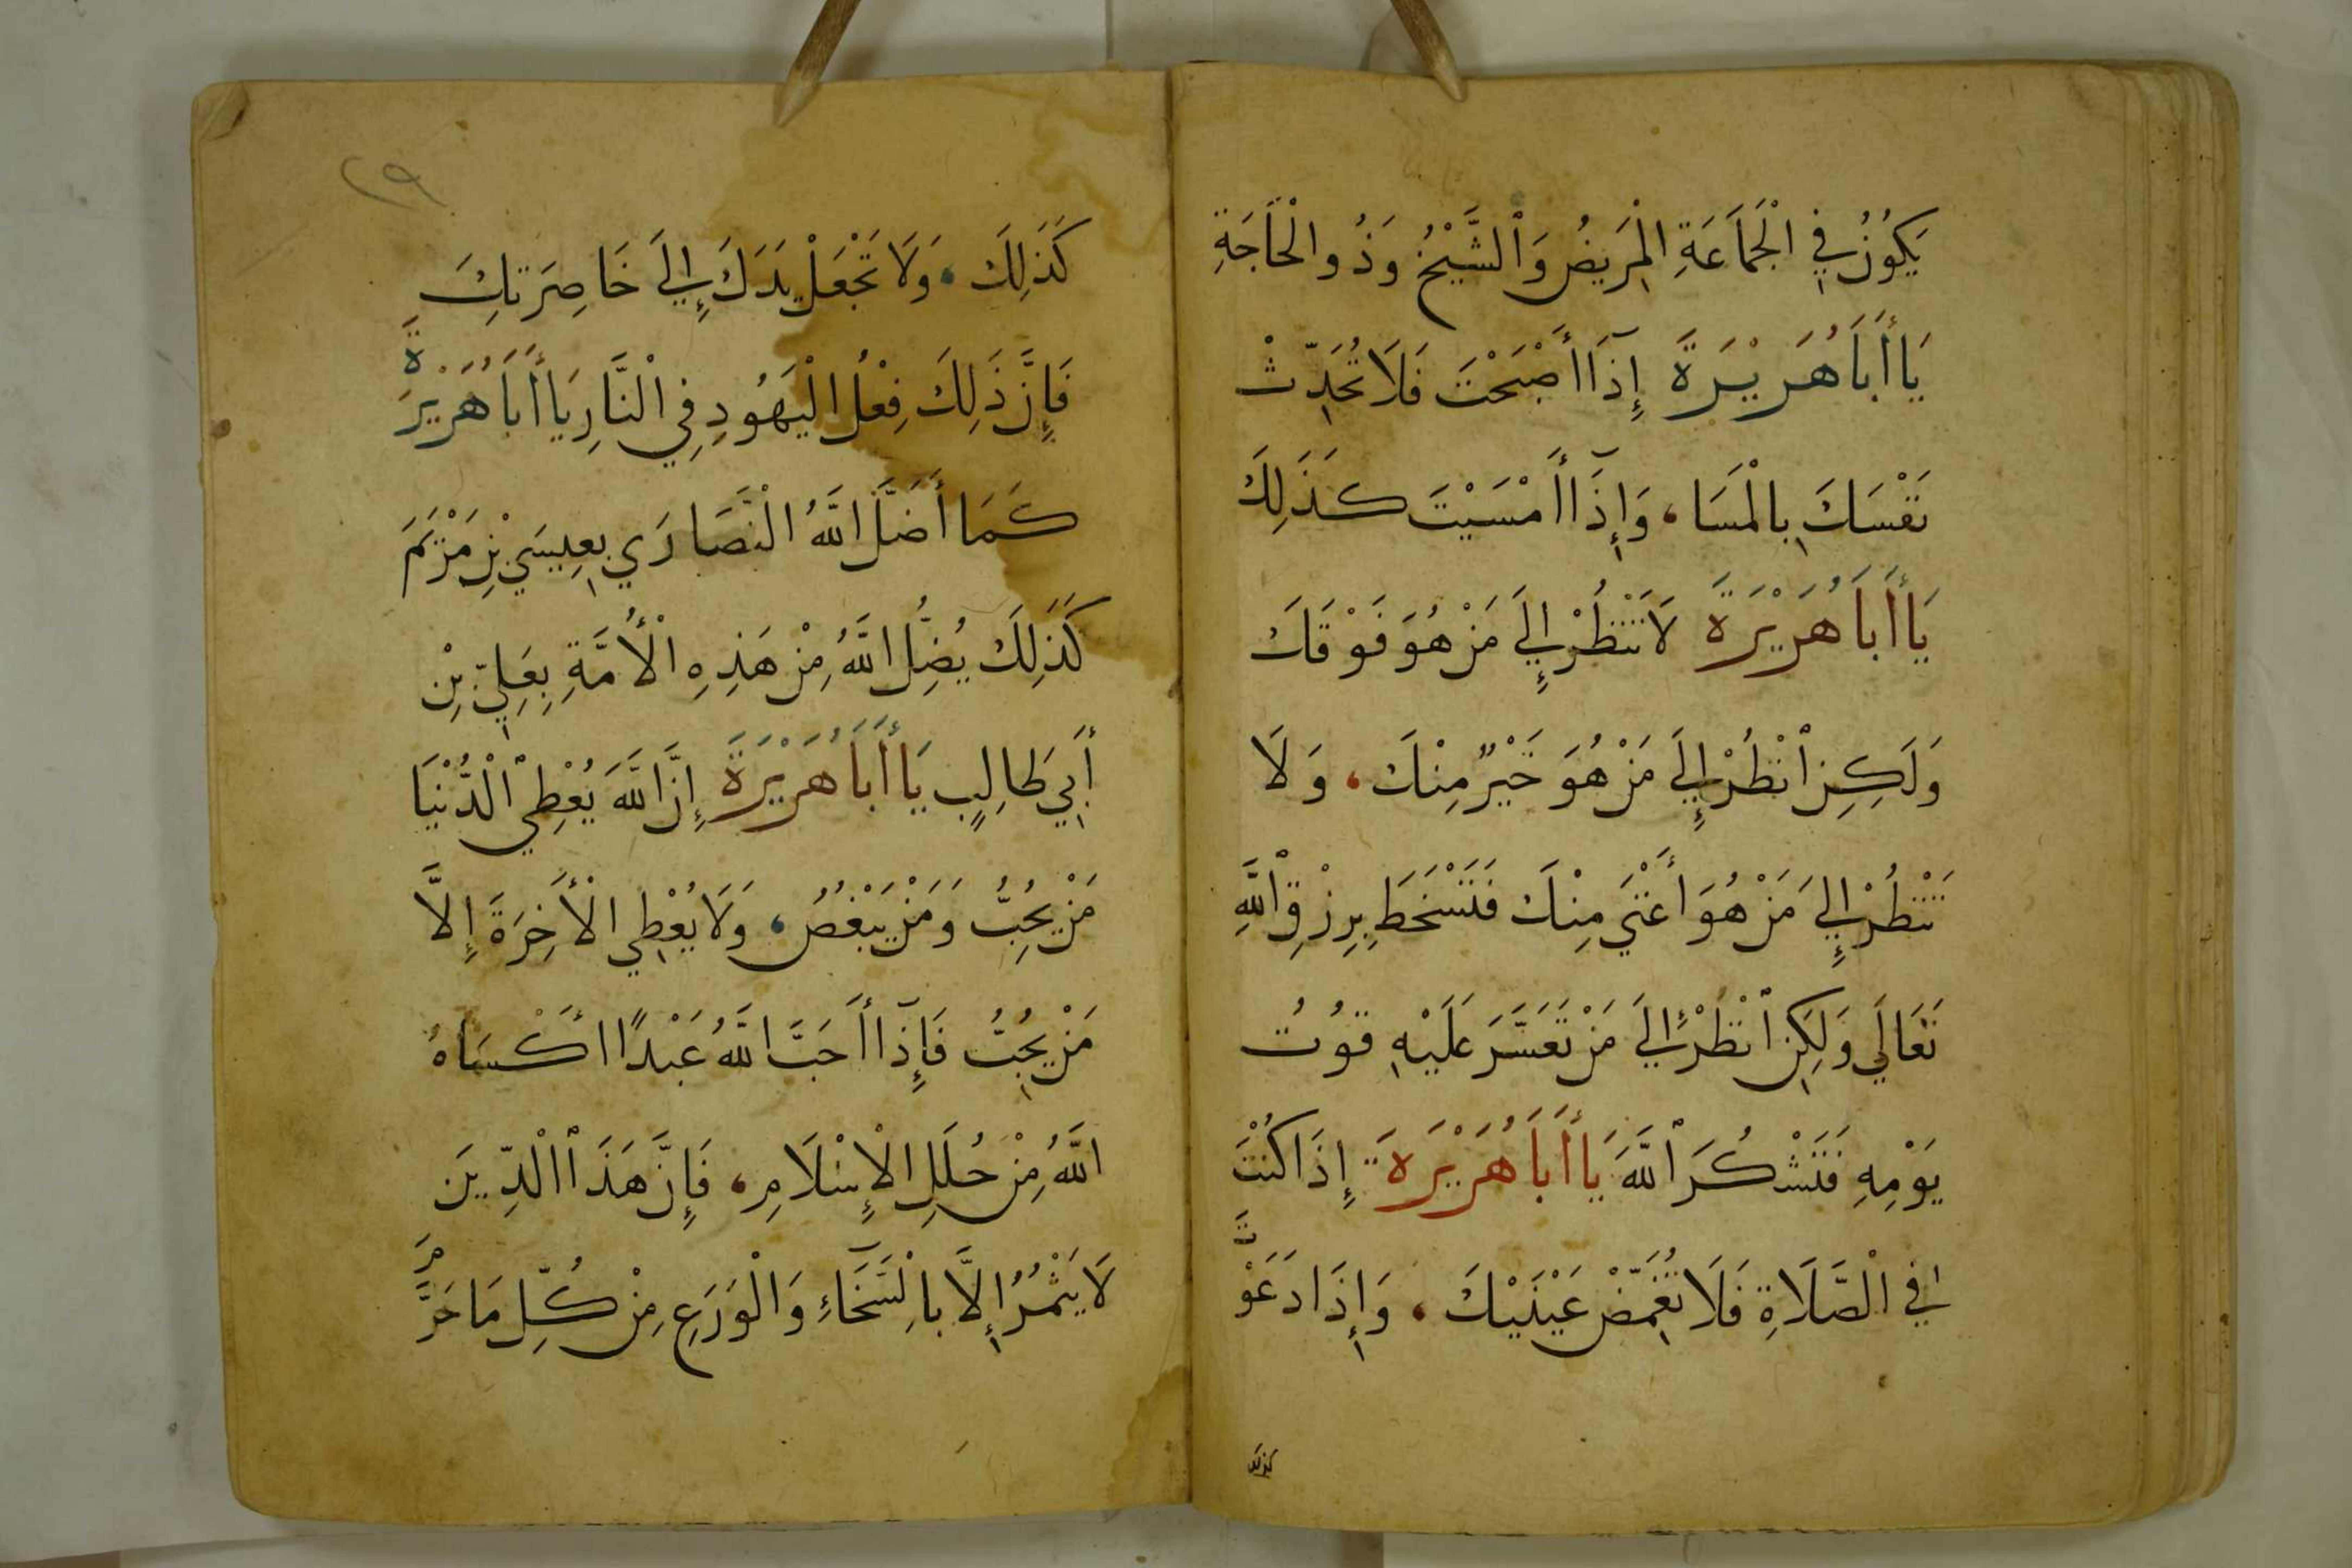 يَكُونُ فِي الْجَمَاعَةِ الْمَرِيضُ وَٱلشَّيْخُ وَذُو الْحَاجَةِ
يَا أَبَا هُرَيْرَةَ إِذَا أَصْبَحْتَ فَلَا تُحَدِّثْ
نَفْسَكَ بِالْمَسَا، وَإِذَا أَمْسَيْتَ كَذَلِكَ
يَا أَبَا هُرَيْرَةَ لَا تَنْظُرْ إِلَي مَنْ هُوَ فَوْقَكَ
وَلَكِنِ ٱنْظُرْ إِلَي مَنْ هُوَ خَيْرٌ مِنْكَ، وَلَا
تَنْظُرْ إِلَي مَنْ هُوَ أَغْنَي مِنْكَ فَتَسْخَطَ بِرِزْقِ ٱللَّهِ
تَعَالَي وَلَكِنِ ٱنْظُرْ إِلَي مَنْ تَعَسَّرَ عَلَيْهِ قُوتُ
يَوْمِهِ فَتَشْكُرَ ٱللَّهَ يَا أَبَا هُرَيْرَةَ إِذَا كُنْتَ
فِي الْصَّلَاةِ فَلَا تُغَمِّضْ عَيْنَيْكَ، وَإِذَا دَعَوْتَ
كذلك
٢٩
كَذَلِكَ، وَلَا تَجْعَلْ يَدَكَ إِلَي خَاصِرَتِكَ
فَإِنَّ ذَلِكَ فِعْلُ الْيَهُودِ فِي الْنَّارِ يَا أَبَا هُرَيْرَةَ
كَمَا أَضَلَّ اللَّهُ الْنَّصَارَي بِعِيسَي بْنِ مَرْيَمَ
كَذَلِكَ يُضِلُّ اللَّهُ مِنْ هَذِهِ الْأُمَّةِ بِعَلِيِّ بْنِ
أَبِي طَالِبٍ يَا أَبَا هُرَيْرَةَ إِنَّ اللَّهَ يُعْطِي ٱلْدُّنْيَا
مَنْ يُحِبُّ وَمَنْ يَبْغُضُ، وَلَا يُعْطِي الْأَخِرَةَ إِلَّا
مَنْ يُحِبُّ فَإِذَا أَحَبَّ اللَّهُ عَبْدًا أَكْسَاهُ
اللَّهُ مِنْ حُلَلِ الْإِسْلَامِ، فَإِنَّ هَذَا ٱلْدِّينَ
لَا يَثْمُرُ إِلَّا بِالْسَّخَاءِ وَالْوَرَعِ مِنْ كُلِّ مَا حَرَّمَ